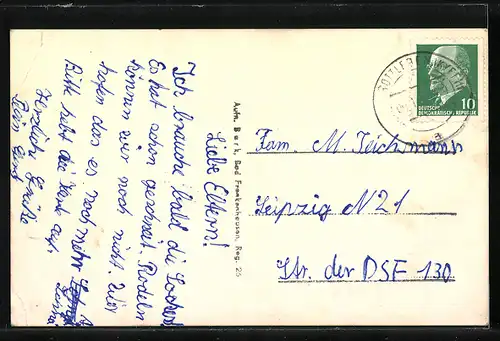 Liebe Eltern!
Ich brauche bald die Locken
Es hat schon geschneit. Rodeln
können wir noch nicht. Wir
hofen das es noch mehr
Bitte hebt die Karte auf.
Herzliche Grüße
Aufn. Burk, Bad Frankenhausen, Reg. 25
ROTTLEBEN
a
10
DEUTSCHE
DEMOKRATISCHE REPUBLIK
Fam. M. Teichmann
Leipzig N21
Str. der DSF 130